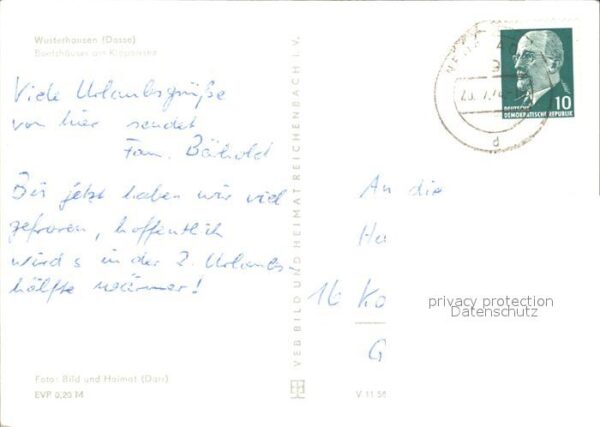 Wusterhausen (Dosse)
Bootshäuser am Klempowsee
Viele Urlaubsgrüße
von hier sendet
Fam. Böthold
Bis jetzt haben wir viel
gefroren, hoffentlich
wird's in der 2. Urlaubs-
hälfte wärmer!
Foto: Bild und Heimat (Darr)
EVP 0,20 M
VEB BILD UND HEIMAT REICHENBACH I. V.
V 11 50
DEUTSCHE
DEMOKRATISCHE REPUBLIK
10
An die
Ha
16 Ko
G
privacy protection
Datenschutz